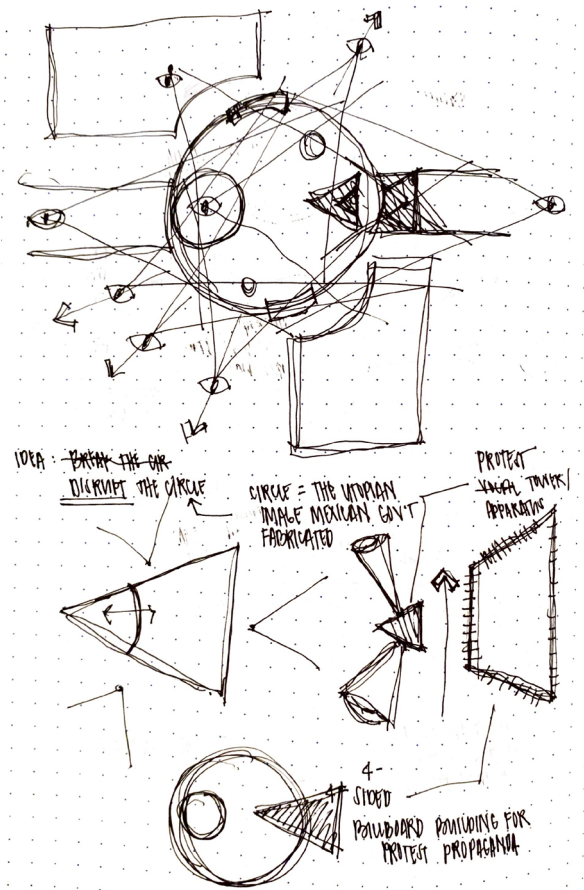 IDEA: BREAK THE CIR
DISRUPT THE CIRCLE
CIRCLE = THE UTOPIAN
IMAGE MEXICAN GOV'T
FABRICATED
PROTEST
TOWER/
APPARATUS
4-
SIDED
BILLBOARD BUILDING FOR
PROTEST PROPAGANDA